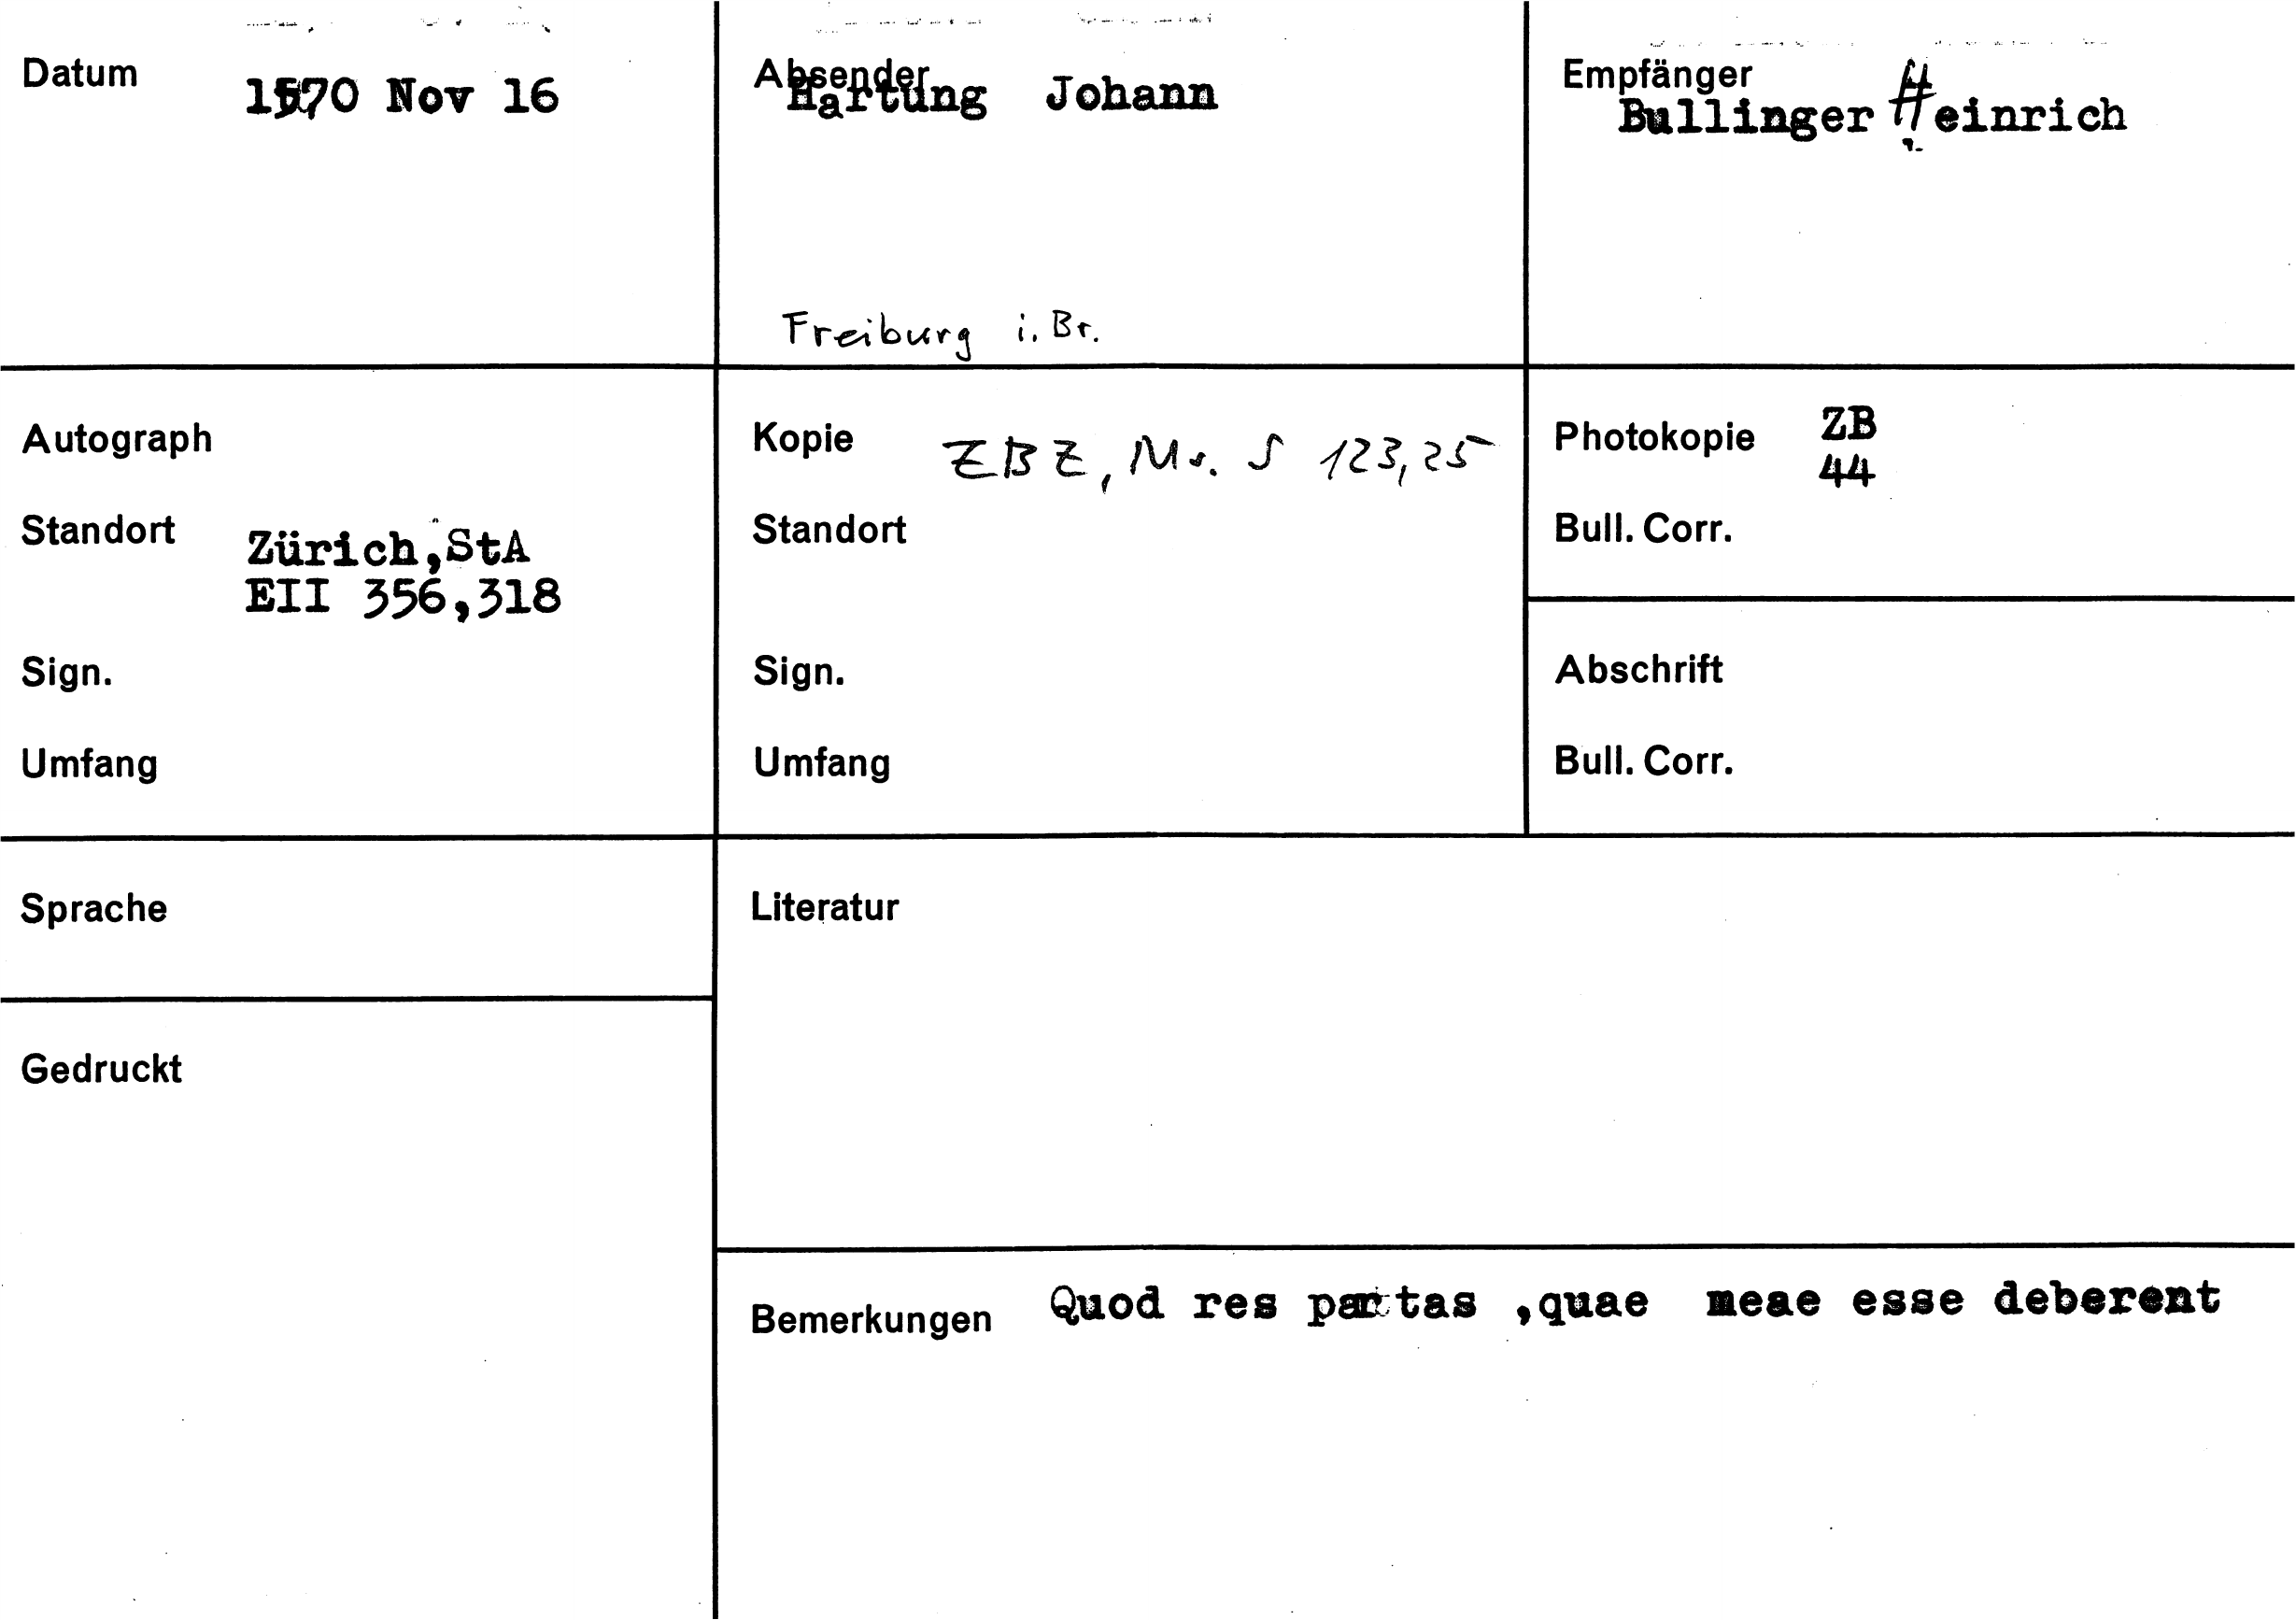 Datum 1570 Nov 16
Absender Hartung Johann
Freiburg i. Br.
Empfänger
Bullinger Heinrich
Autograph
Standort Zürich, StA
EII 356,318
Sign.
Umfang
Kopie ZBZ, Ms. S 123,25
Standort
Sign.
Umfang
Photokopie ZB
44
Bull. Corr.
Abschrift
Bull. Corr.
Sprache
Literatur
Gedruckt
Bemerkungen Quod res partas ,quae meae esse deberent